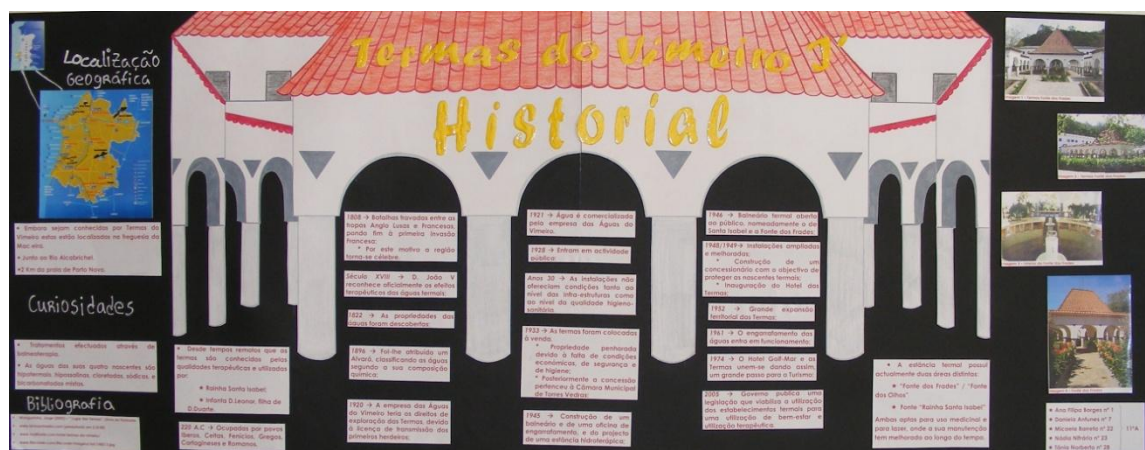 Termas do Vimeiro I'
Historial
Localização
Geográfica
• Embora sejam conhecidas por Termas do
Vimeiro estas estão localizadas na freguesia da
Maceira.
• Junto ao Rio Alcabrichel
•2 Km da praia de Porto Novo.
Curiosidades
• Tratamentos efectuados através de
balneoterapia.
• As águas das suas quatro nascentes são
hipotermais, hipossalinas, cloretadas, sódicas, e
bicarbonatadas mistas.
Bibliografia
• Desde tempos remotos que as
termas são conhecidas pelas
qualidades terapêuticas e utilizadas
por:
• Rainha Santa Isabel;
• Infanta D.Leonor, filha de
D.Duarte.
220 A.C → Ocupadas por povos
Iberos, Celtas, Fenícios, Gregos,
Cartagineses e Romanos.
1808 → Batalhas travadas entre as
tropas Anglo Lusas e Francesas,
pondo fim à primeira invasão
Francesa:
* Por este motivo a região
torna-se célebre.
Século XVIII → D. João V
reconhece oficialmente os efeitos
terapêuticos das águas termais;
1822 → As propriedades das
águas foram descobertas;
1896 → Foi-lhe atribuído um
Alvará, classificando as águas
segundo a sua composição
química;
1920 → A empresa das Águas
do Vimeiro teria os direitos de
exploração das Termas, devido
à licença de transmissão dos
primeiros herdeiros;
1921 → Água é comercializada
pela empresa das Águas do
Vimeiro.
1928 → Entram em actividade
pública;
Anos 30 → As instalações não
ofereciam condições tanto ao
nível das infra-estruturas como
ao nível da qualidade higieno-
sanitária
1933 → As termas foram colocadas
à venda.
* Propriedade penhorada
devido à falta de condições
económicas, de segurança e
de higiene;
* Posteriormente a concessão
pertenceu à Câmara Municipal
de Torres Vedras;
1945 → Construção de um
balneário e de uma oficina de
engarrafamento, e do projecto
de uma estância hidroterápica;
1946 → Balneário termal aberto
ao público, nomeadamente o de
Santa Isabel e a Fonte dos Frades
1948/1949→ Instalações ampliadas
e melhoradas;
* Construção de um
concessionário com o objectivo de
proteger as nascentes termais;
* Inauguração do Hotel das
Termas;
1952 → Grande expansão
territorial das Termas;
1961 → O engarrafamento das
águas entra em funcionamento;
1974 → O Hotel Golf-Mar e as
Termas unem-se dando assim,
um grande passo para o Turismo;
2005 → Governo publica uma
legislação que viabiliza a utilização
dos estabelecimentos termais para
uma utilização de bem-estar e
utilização terapêutica.
• A estância termal possui
actualmente duas áreas distintas:
• "Fonte dos Frades" / "Fonte
dos Olhos"
• Fonte "Rainha Santa Isabel"
Ambas aptas para uso medicinal e
para lazer, onde a sua manutenção
tem melhorado ao longo do tempo.
• Ana Filipa Borges nº 1
• Daniela Antunes nº 7
• Micaela nº 22
• Nádia nº 23
• Tânia Norberto nº 28
11ºA